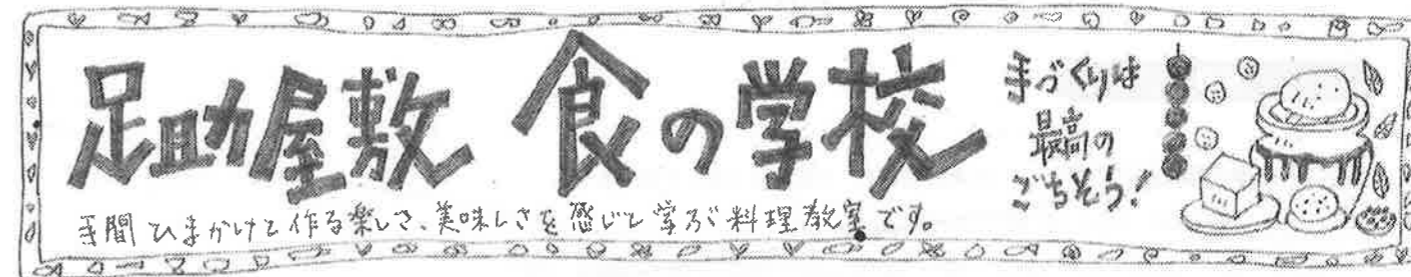 足助屋敷 食の学校
手づくりは
最高の
ごちそう!
手間ひまかけて作る楽しさ、美味しさを感じて学ぶ料理教室です。